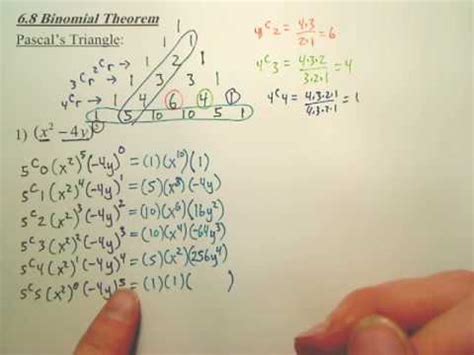 6.8 Binomial Theorem
Pascal's Triangle:
1 1
₂Cr → 1 2 1
₃Cr → 1 3 3 1
₄Cr → 1 4 6 4 1
1 5 10 10 5 1
₄C₂ = 4·3/2·1 = 6
₄C₃ = 4·3·2/3·2·1 = 4
₄C₄ = 4·3·2·1/4·3·2·1 = 1
1) (x² – 4y)⁵
₅C₀(x²)⁵(-4y)⁰ = (1)(x¹⁰)(1)
₅C₁(x²)⁴(-4y)¹ = (5)(x⁸)(-4y)
₅C₂(x²)³(-4y)² = (10)(x⁶)(16y²)
₅C₃(x²)²(-4y)³ = (10)(x⁴)(-64y³)
₅C₄(x²)¹(-4y)⁴ = (5)(x²)(256y⁴)
₅C₅(x²)⁰(-4y)⁵ = (1)(1)( )